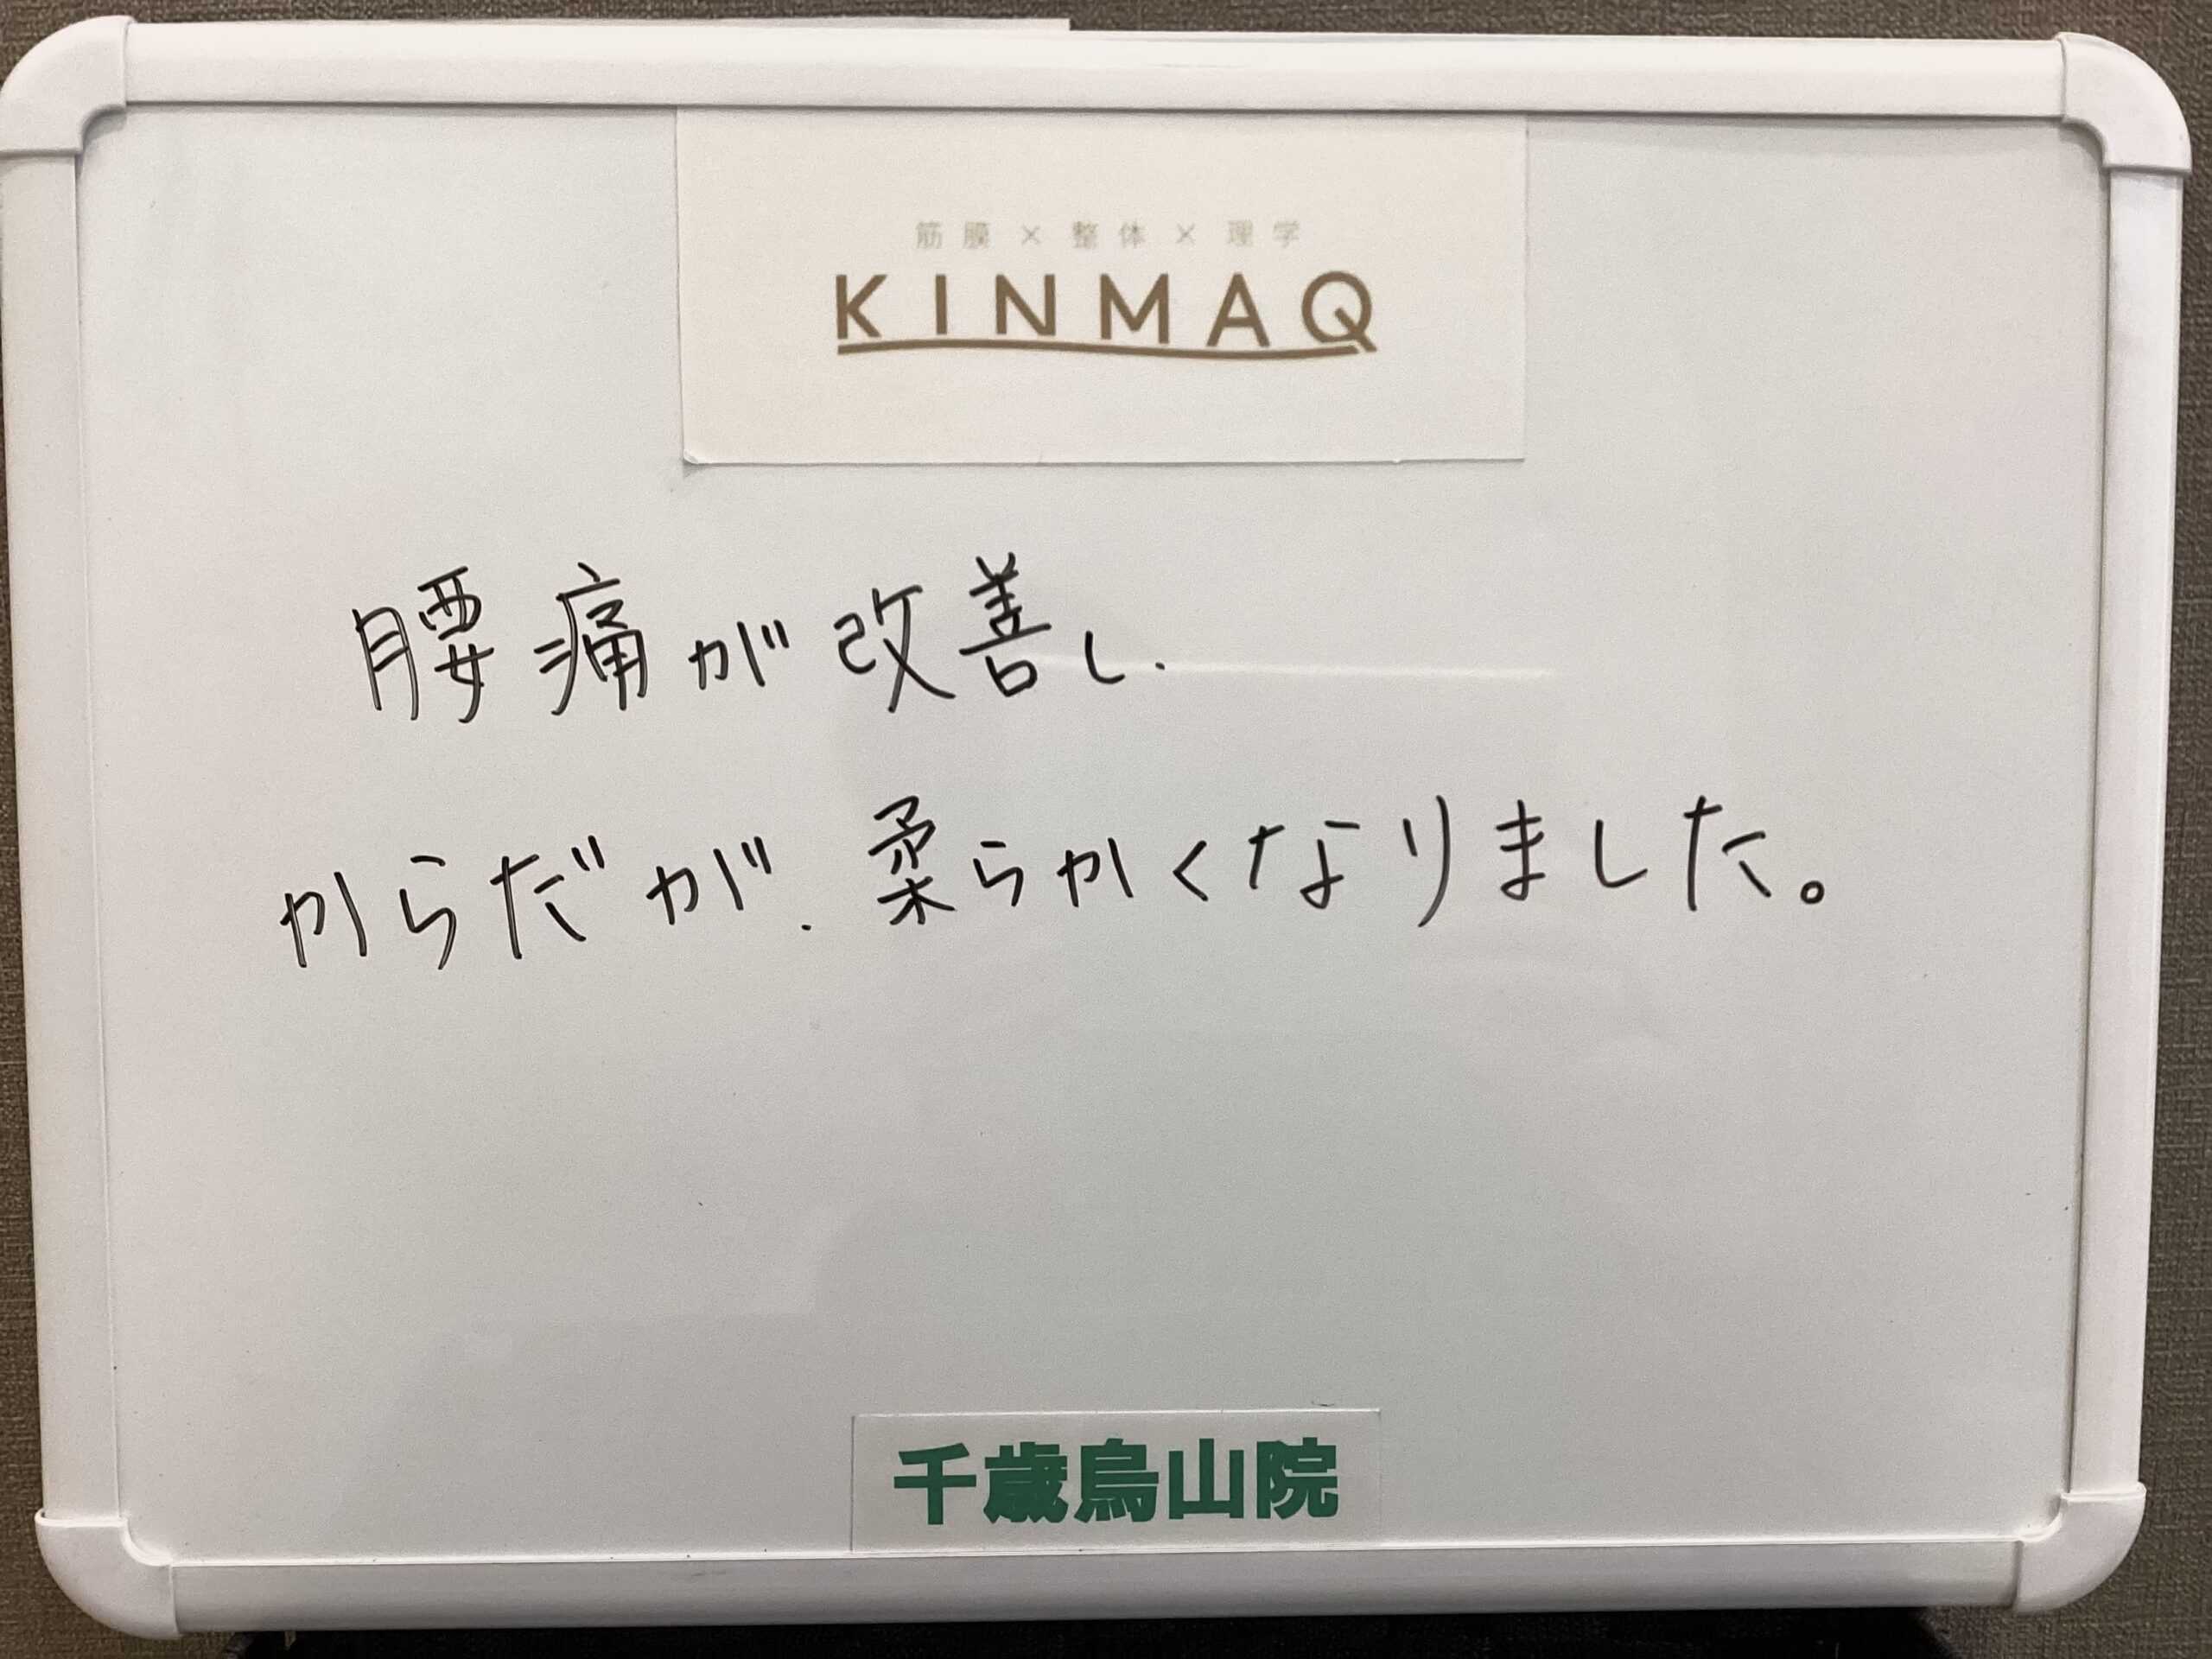 筋膜×整体×理学
KINMAQ
腰痛が改善し、
からだが、柔らかくなりました。
千歳烏山院